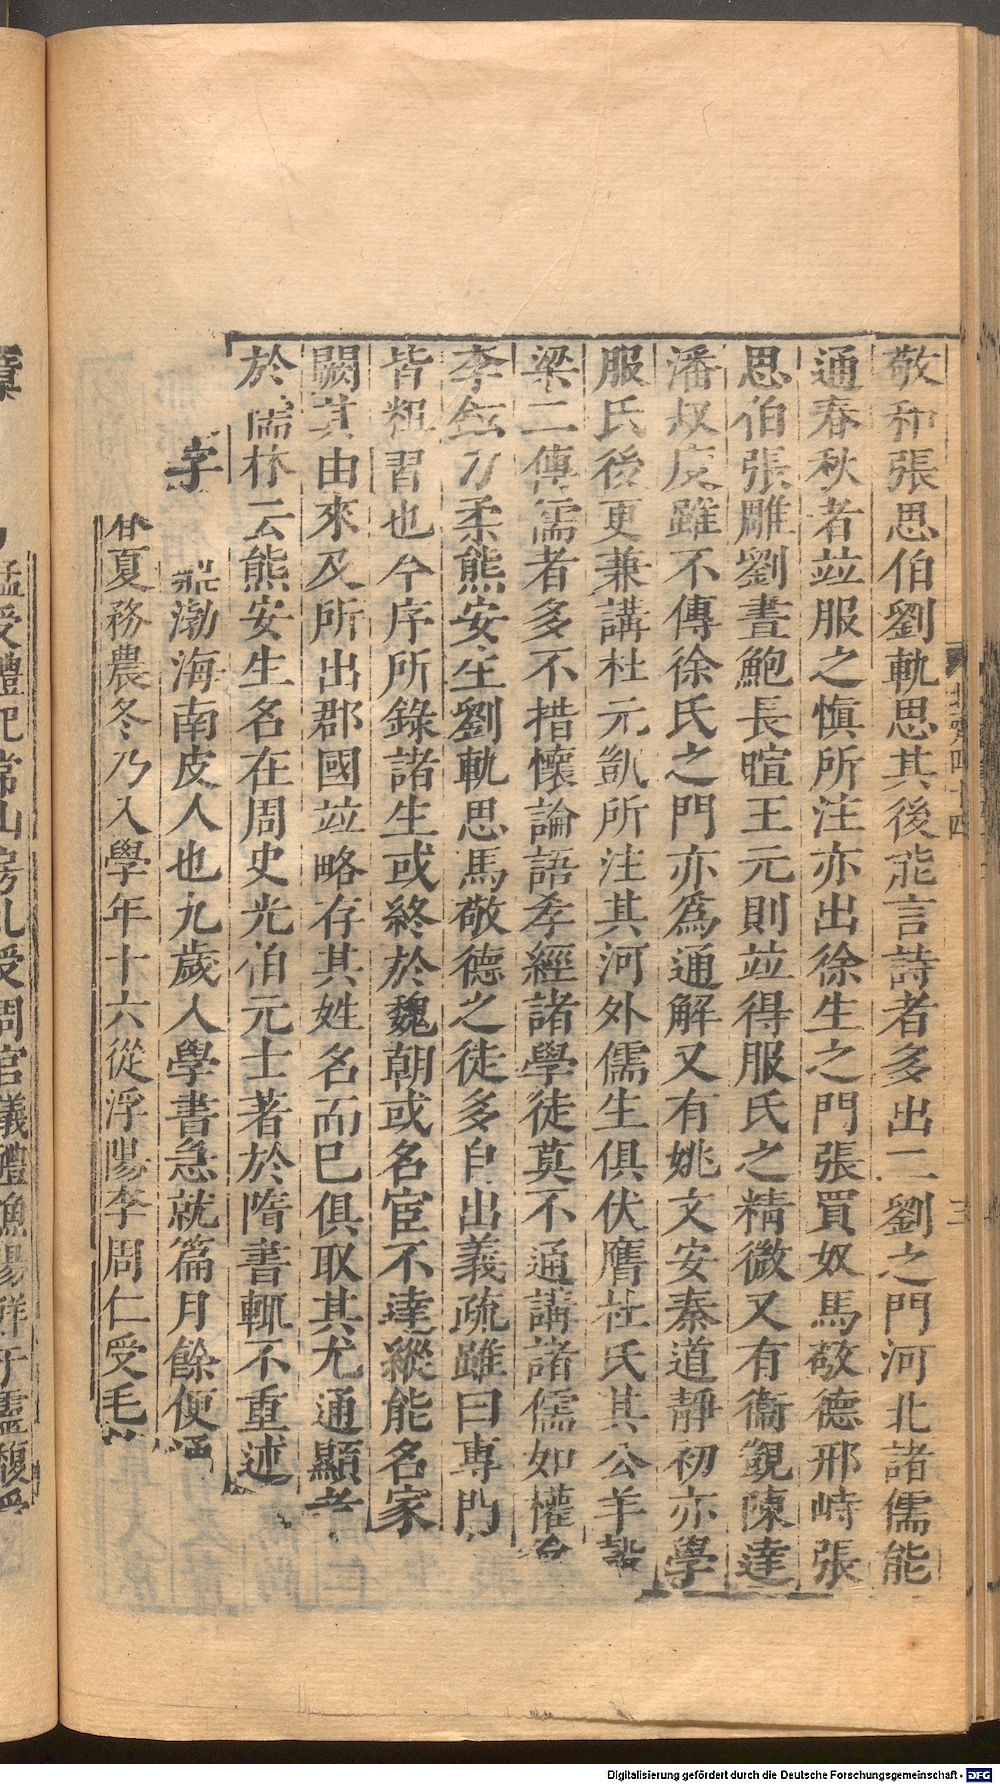 敬和張思伯劉軌思其後能言詩者多出二劉之門河北諸儒能
通春秋者竝服之慎所注亦出徐生之門張買奴馬敬德邢峙張
思伯張雕劉晝鮑長暄王元則竝得服氏之精微又有衞覬陳達
潘叔度雖不傳徐氏之門亦爲通解又有姚文安秦道靜初亦學
服氏後更兼講杜元凱所注其河外儒生俱伏膺杜氏其公羊榖
梁二傳儒者多不措懷論語孝經諸學徒莫不通講諸儒如權會
李鉉刀柔熊安生劉軌思馬敬德之徒多自出義疏雖曰專門
皆粗習也今序所錄諸生或終於魏朝或名宦不達縱能名家
闕其由來及所出郡國竝略存其姓名而已俱取其尤通顯者
於儒林云熊安生名在周史光伯元士著於隋書輒不重述
李 鼎渤海南皮人也九歲入學書急就篇月餘便通
春夏務農冬乃入學年十六從浮陽李周仁受毛
北齊四十四
三
猛受禮記常山房虬受周官儀禮漁陽鮮于靈馥受
Digitalisierung gefördert durch die Deutsche Forschungsgemeinschaft - DFG